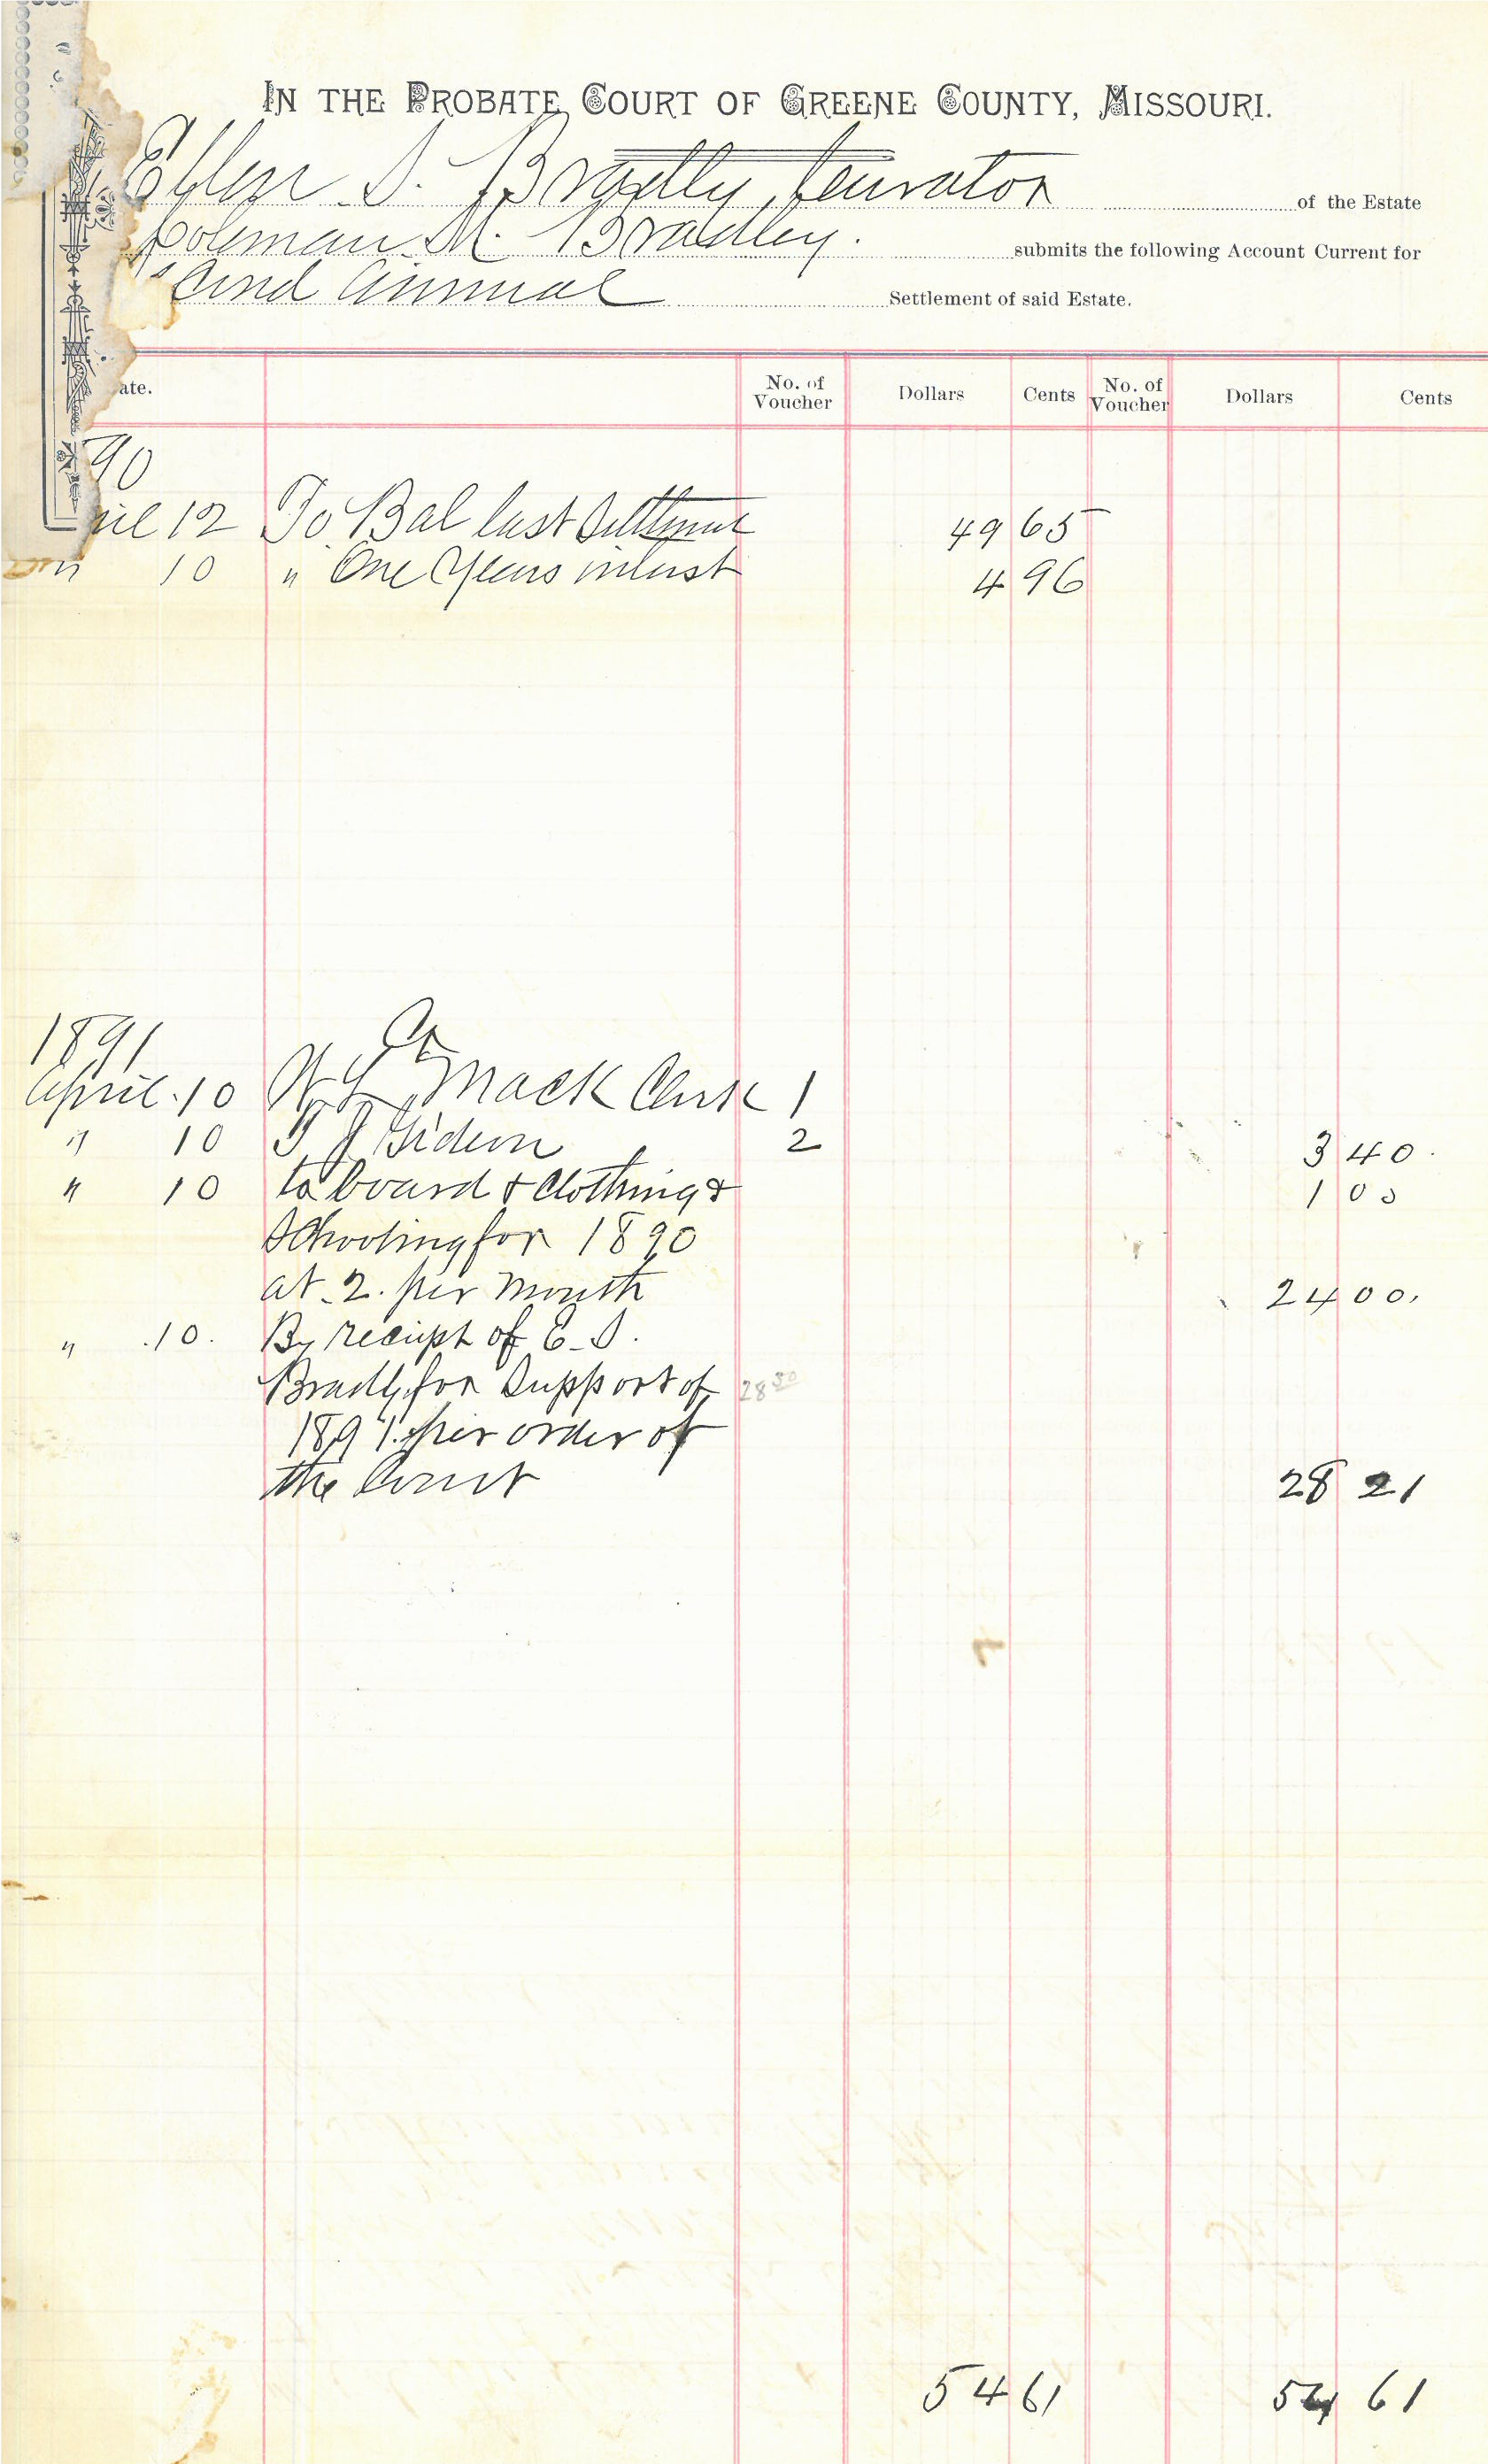 IN THE PROBATE COURT OF GREENE COUNTY, MISSOURI.
S. Bradly, Curator of the Estate
Coleman M. Bradley. submits the following Account Current for
cond annual Settlement of said Estate.
ate. No. of Voucher Dollars Cents No. of Voucher Dollars Cents
90
ril 12 To Bal last Settlment 49 65
" 10 " One Years intrest 4 96
1891 Cr
April. 10 Mack Clerk 1
" 10 Gideon 2 3 40.
" 10 to board & Clothing & 1 00
Schooling for 1890
at 2. per Month 24 00.
" .10. By receipt of E. S.
Bradly for Support of 28 30
1891. per order of
the Court 28 21
54 61 54 61